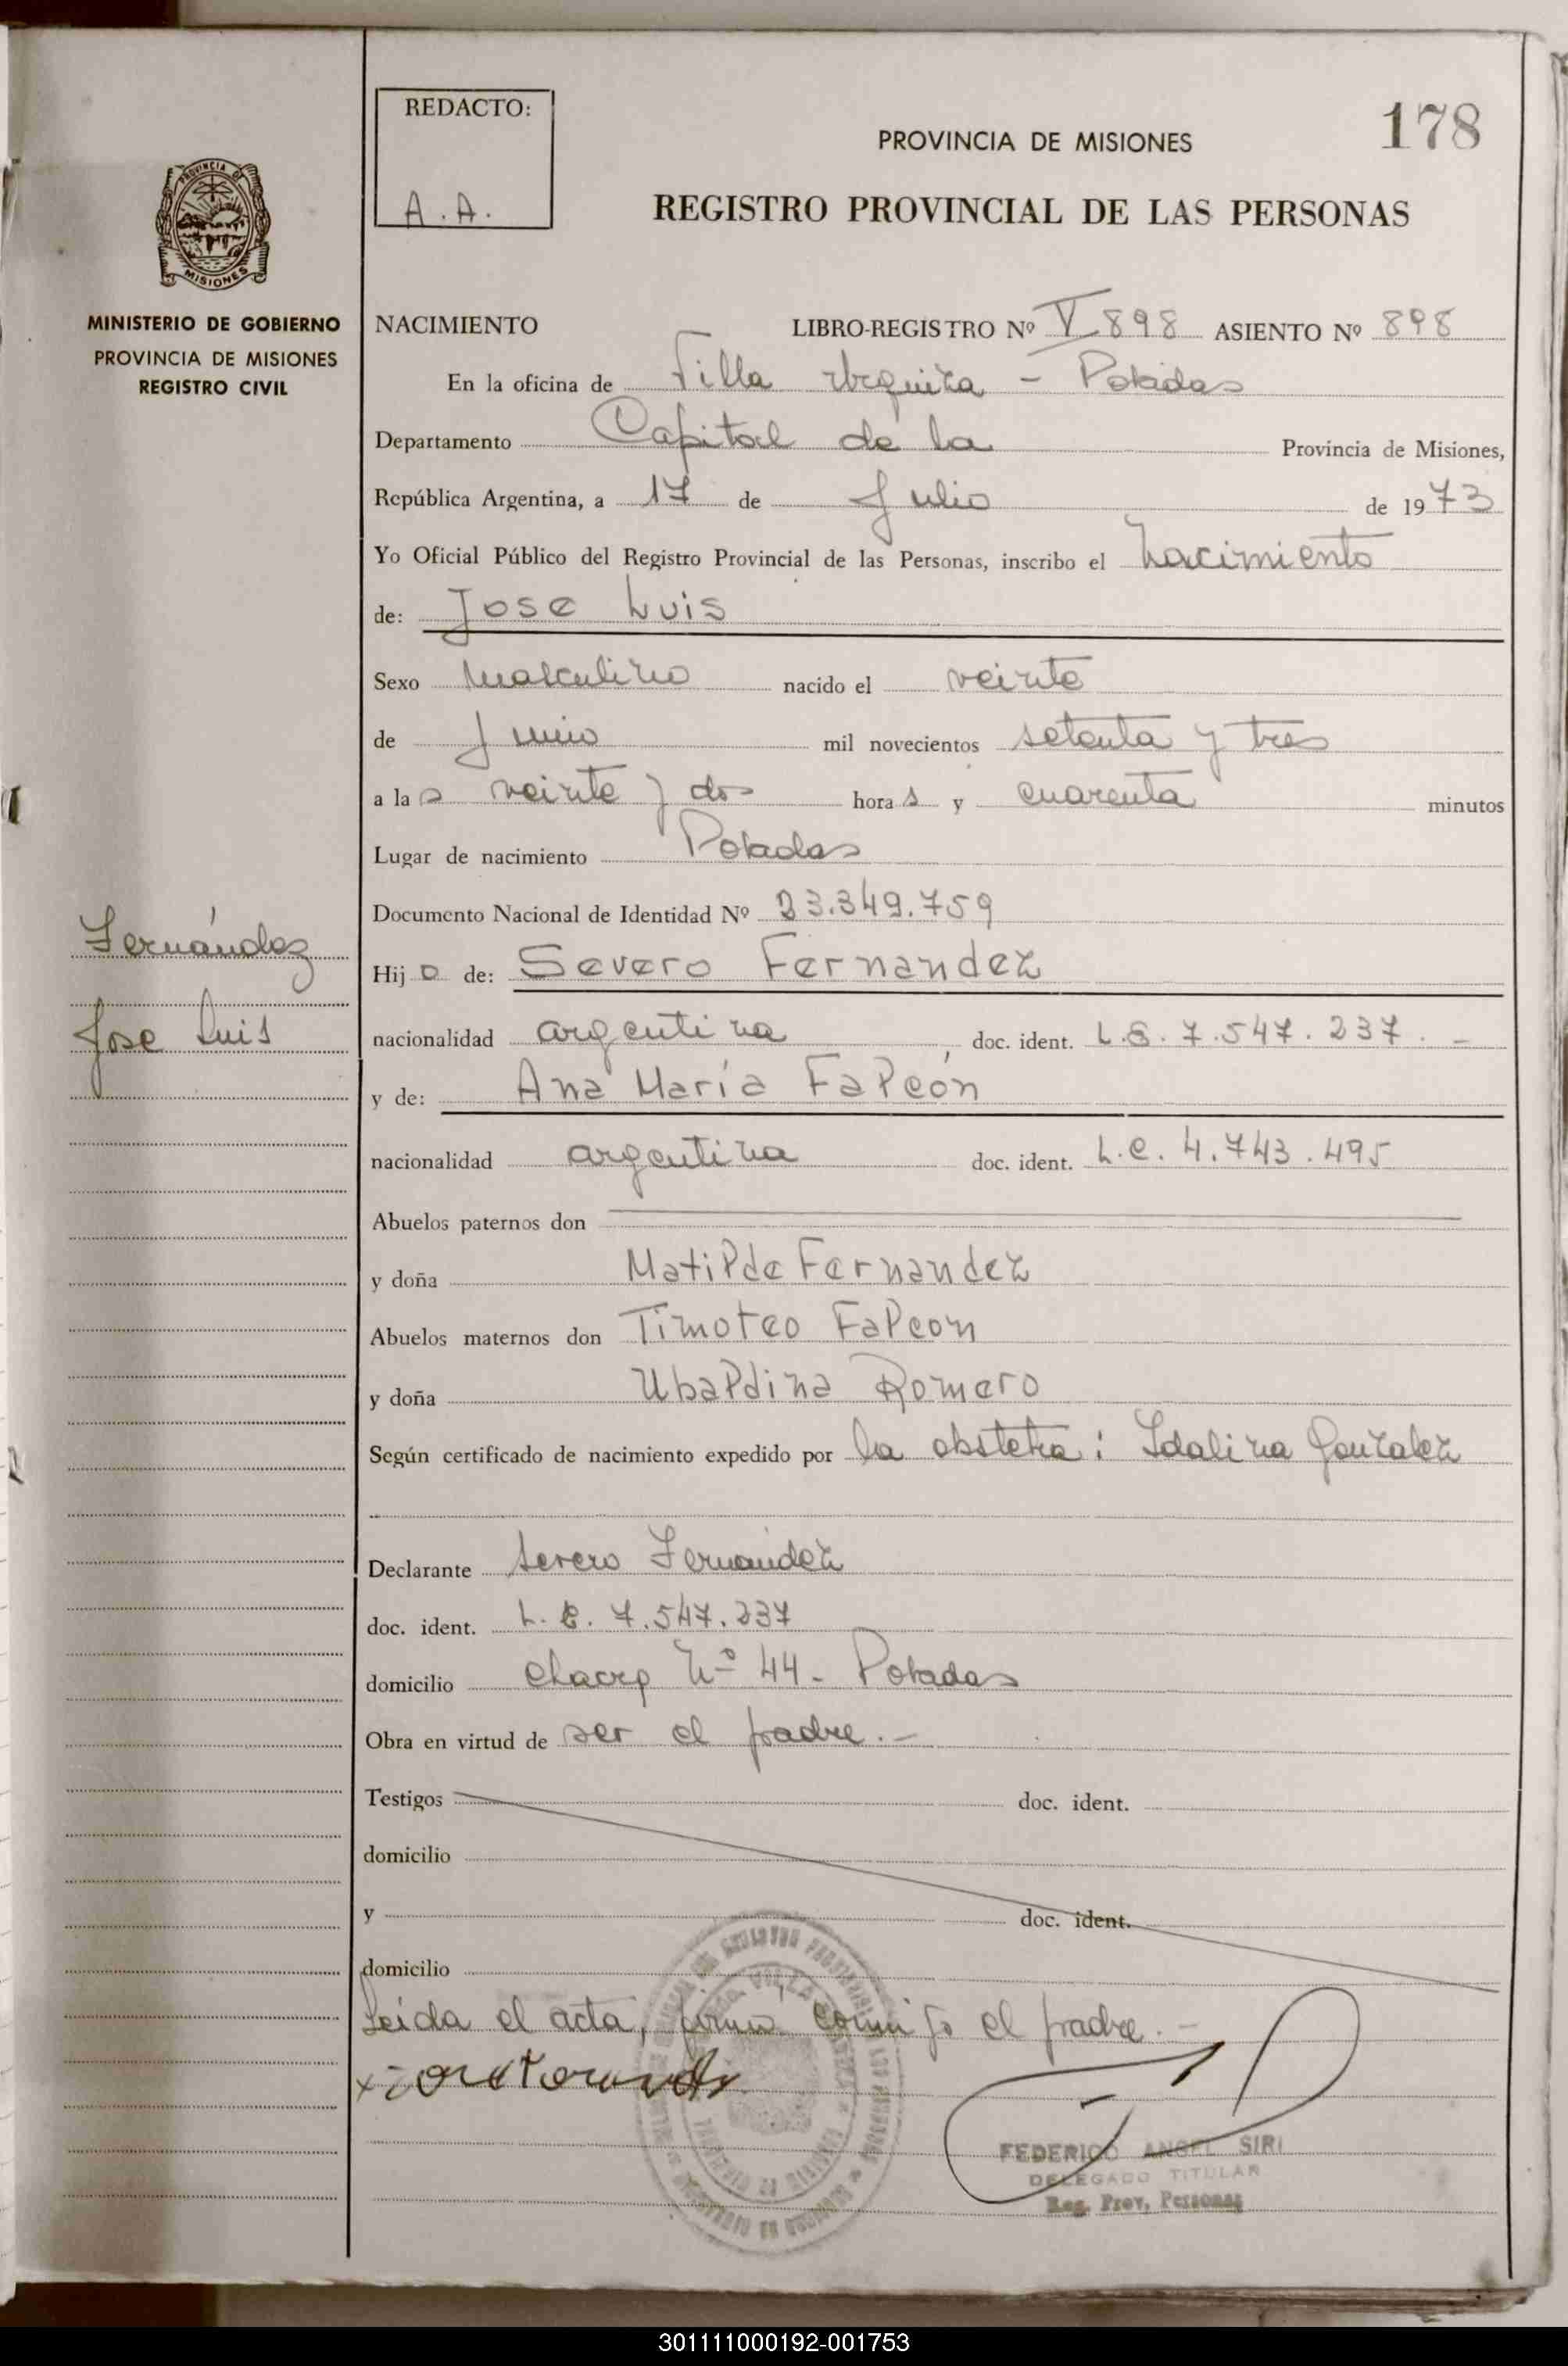 REDACTO:
A.A.
178
PROVINCIA DE MISIONES
REGISTRO PROVINCIAL DE LAS PERSONAS
PROVINCIA DE
MISIONES
MINISTERIO DE GOBIERNO
PROVINCIA DE MISIONES
REGISTRO CIVIL
NACIMIENTO LIBRO-REGISTRO Nº V 898 ASIENTO Nº 898
En la oficina de Villa Urquiza - Posadas
Departamento Capital de la Provincia de Misiones,
República Argentina, a 17 de Julio de 1973
Yo Oficial Público del Registro Provincial de las Personas, inscribo el nacimiento
de: Jose Luis
Sexo masculino nacido el veinte
de Junio mil novecientos setenta y tres
a las veinte y dos horas y cuarenta minutos
Lugar de nacimiento Posadas
Documento Nacional de Identidad Nº 23.349.759
Fernández
Jose Luis
Hijo de: Severo Fernandez
nacionalidad argentina doc. ident. L.E. 7.547.237. -
y de: Ana María Falcón
nacionalidad argentina doc. ident. L.C. 4.743.495
Abuelos paternos don
y doña Matilde Fernandez
Abuelos maternos don Timoteo Falcon
y doña Ubaldina Romero
Según certificado de nacimiento expedido por la obstetra: Idalina Gonzalez
Declarante Severo Fernandez
doc. ident. L.E. 7.547.237
domicilio chacra Nº 44 - Posadas
Obra en virtud de ser el padre. -
Testigos doc. ident.
domicilio
y doc. ident.
domicilio
Leida el acta, firma conmigo el padre. -
FEDERICO ANGEL SIRI
DELEGADO TITULAR
Reg. Prov. Personas
301111000192-001753